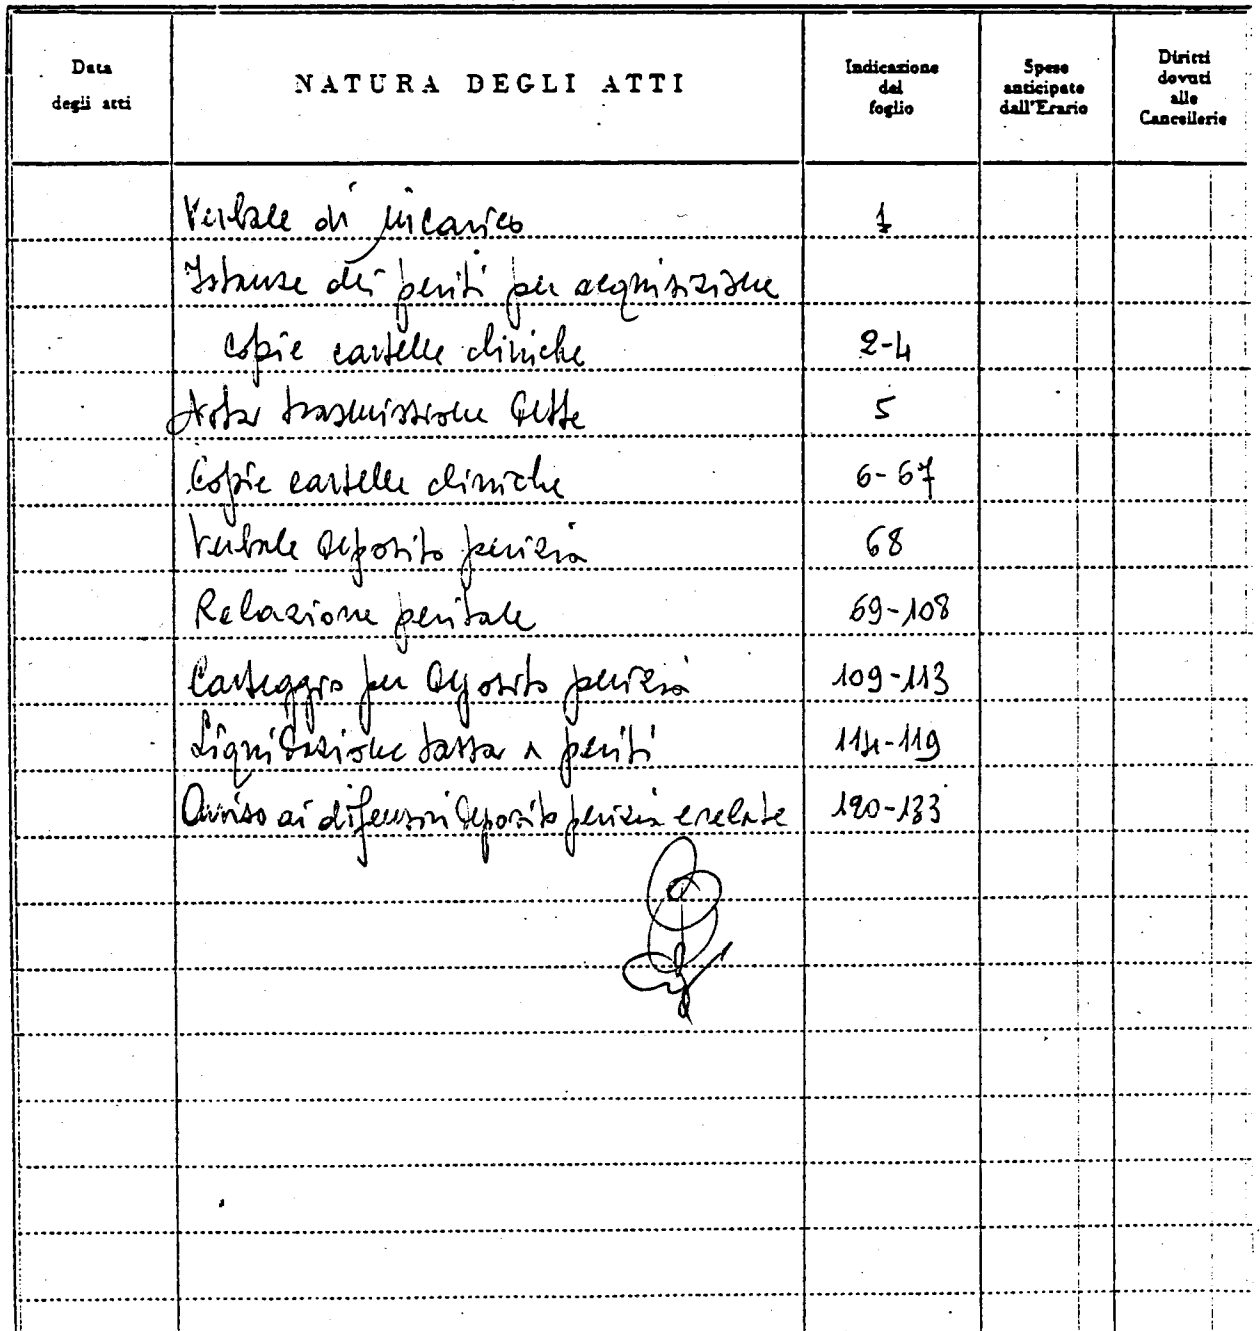 Data degli atti
NATURA DEGLI ATTI
Indicazione del foglio
Spese anticipate dall'Erario
Diritti dovuti alle Cancellerie
Verbale di incarico 1
Istanze dei periti per acquisizione
copie cartelle cliniche 2-4
Nota trasmissione dette 5
Copie cartelle cliniche 6-67
Verbale deposito perizia 68
Relazione peritale 69-108
Carteggio per deposito perizia 109-113
Liquidazione tassa a periti 114-119
Avviso ai difensori deposito perizia e relate 120-133